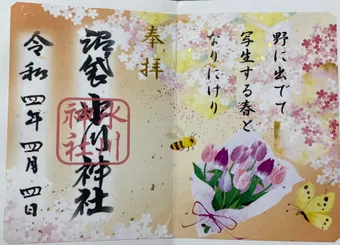 野に出でて
写生する春と
なりにけり
奉拝
沼袋 氷川神社
氷川
神社
令和四年四月四日